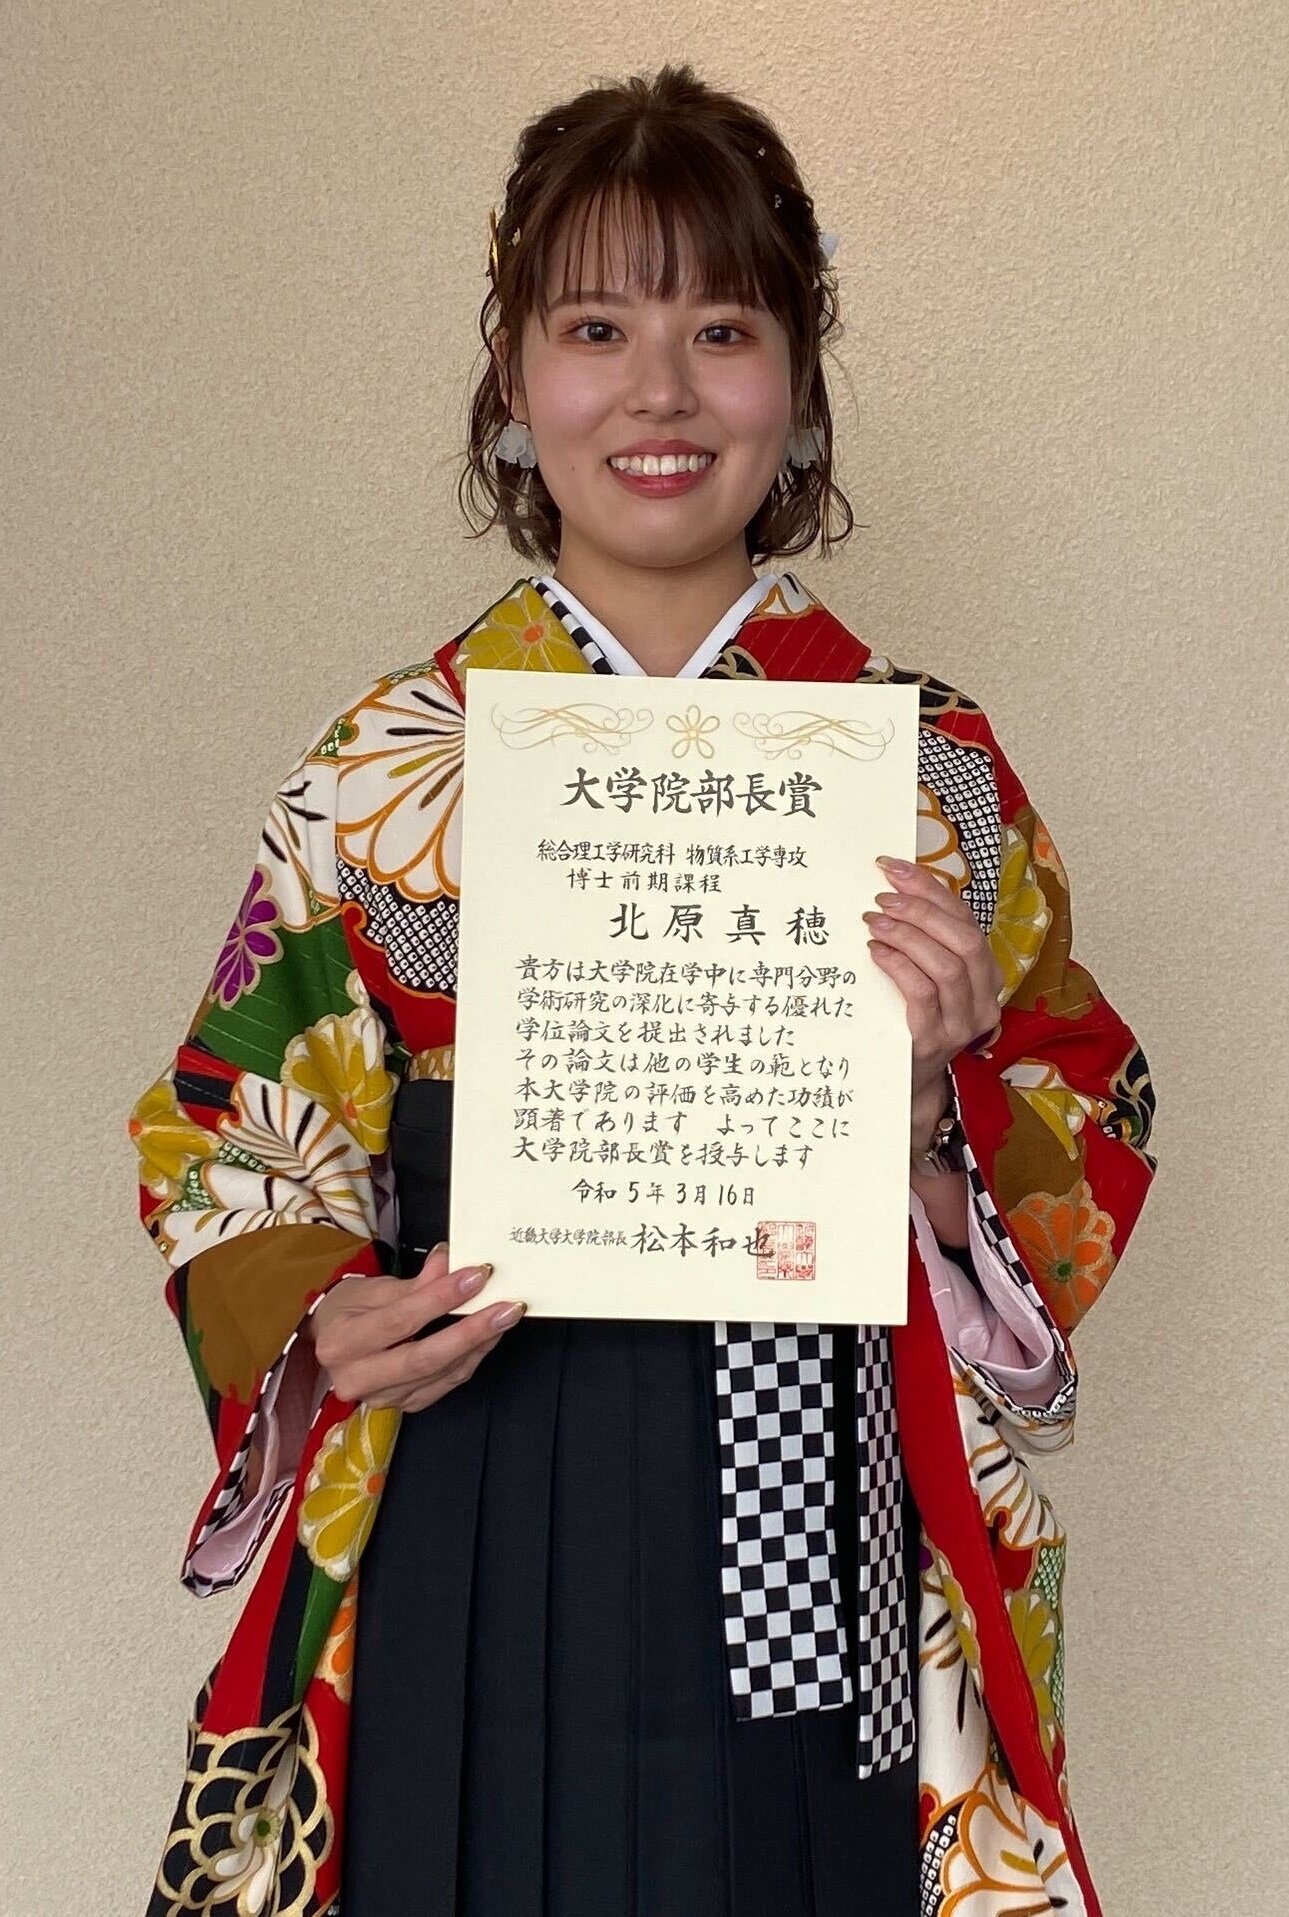 大学院部長賞
総合理工学研究科 物質系工学専攻
博士前期課程
北原真穂
貴方は大学院在学中に専門分野の
学術研究の深化に寄与する優れた
学位論文を提出されました
その論文は他の学生の範となり
本大学院の評価を高めた功績が
顕著であります よってここに
大学院部長賞を授与します
令和5年3月16日
近畿大学大学院部長 松本和也